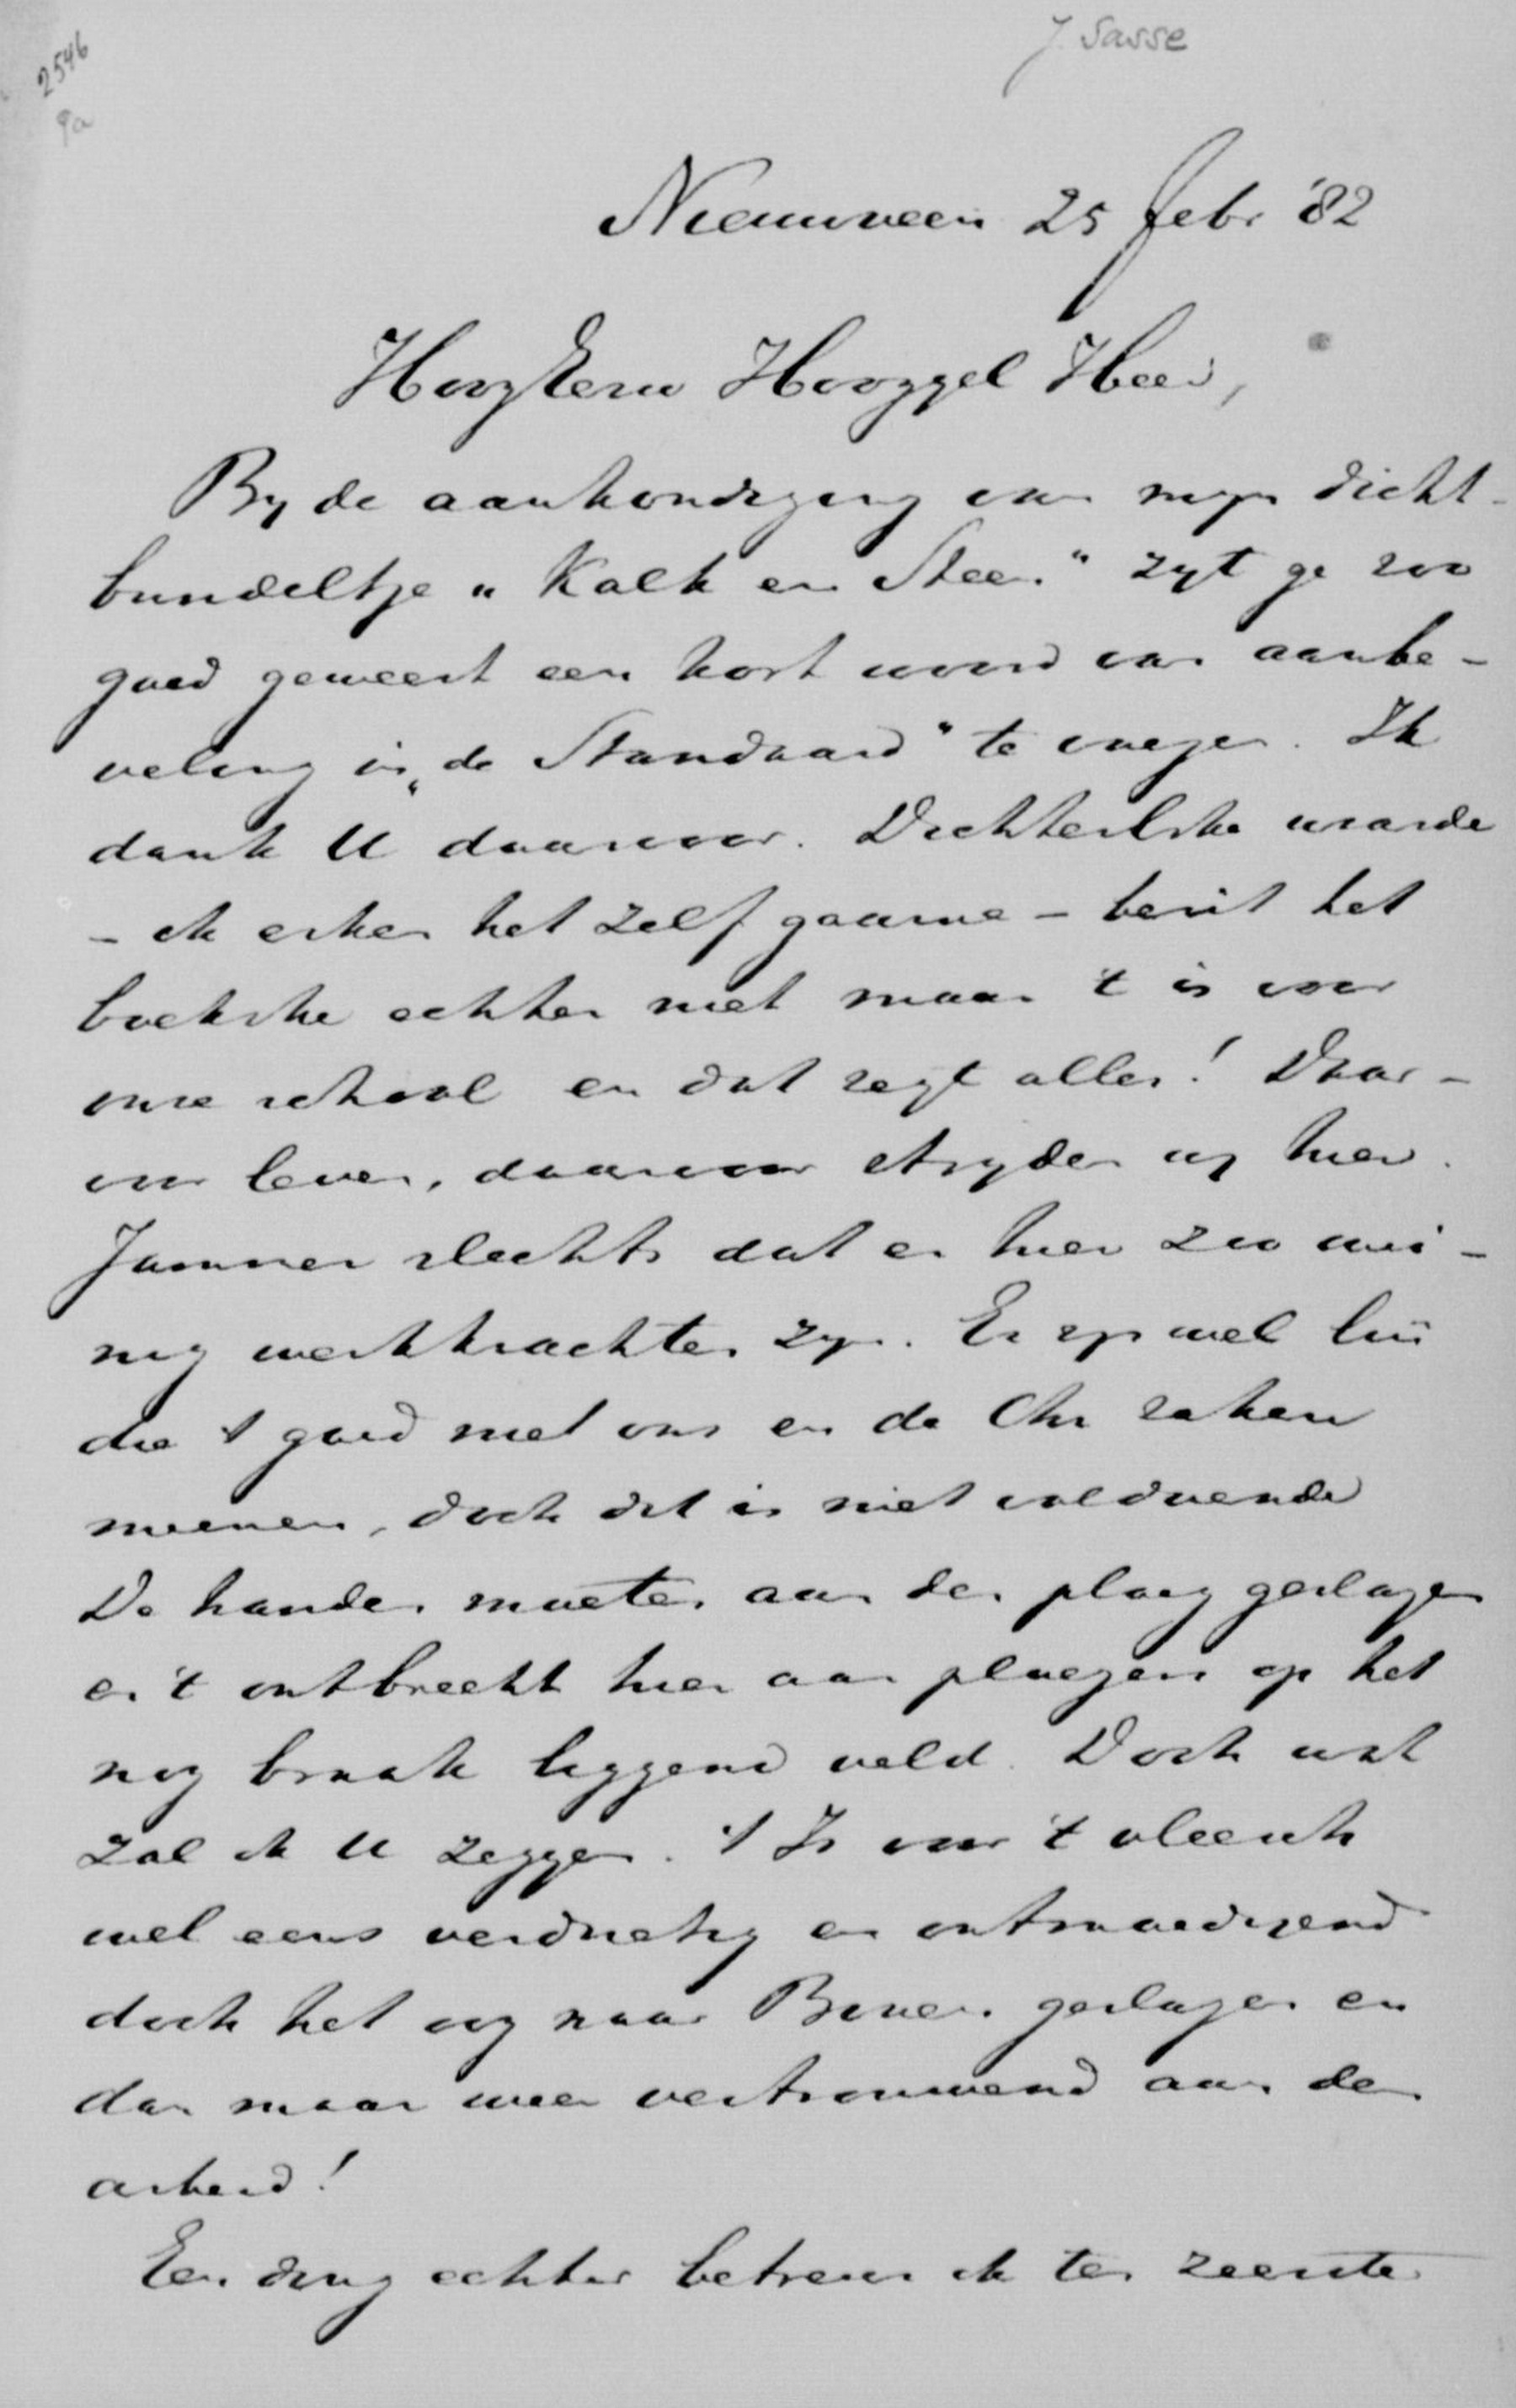 J. Sasse
2546
9a
Nieuwveen 25 Febr '82
HoogEerw Hooggel Heer,
By de aankondiging van myn dicht-
bundeltje „Kalk en Steen" zyt ge zoo
goed geweest een kort woord van aanbe-
veling in „de Standaard" te voegen. Ik
dank U daarvoor. Dichterlyke waarde
- ik erken het zelf gaarne - bezit het
boekske echter niet maar 't is voor
onze school en dat zegt alles! Daar-
voor leven, daarvoor stryden wy hier.
Jammer slechts dat er hier zoo wei-
nig werkkrachten zyn. Er zyn wel lui
die 't goed met ons en de Chr zaken
meenen, doch dit is niet voldoende
De handen moeten aan den ploeg geslagen
en 't ontbreekt hier aan ploegers op het
nog braak liggend veld. Doch wat
zal ik U zeggen. 't Is voor 't vleesch
wel eens verdrietig en ontmoedigend
doch het oog naar Boven geslagen en
dan maar weer vertrouwend aan den
arbeid!
Een ding echter betreur ik ten zeerste